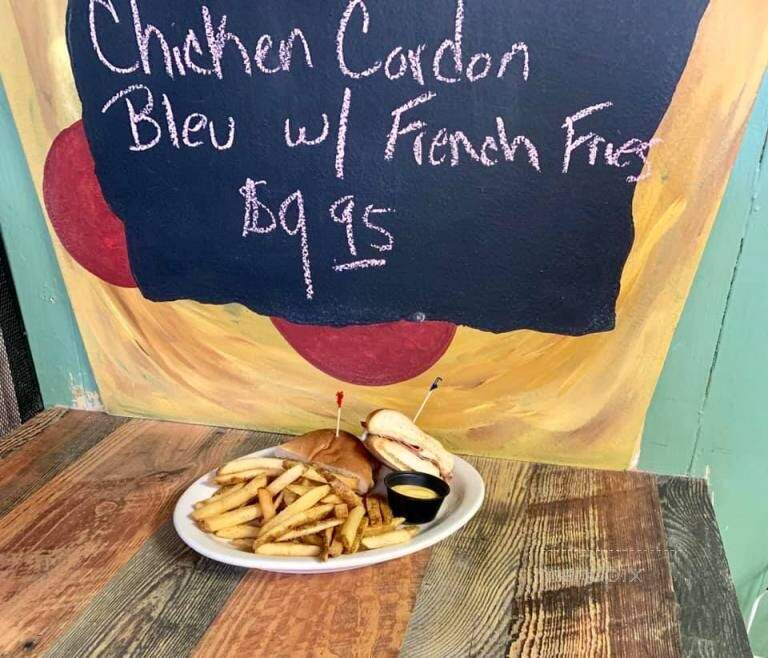 Chicken Cordon
Bleu w/ French Fries
$9.95